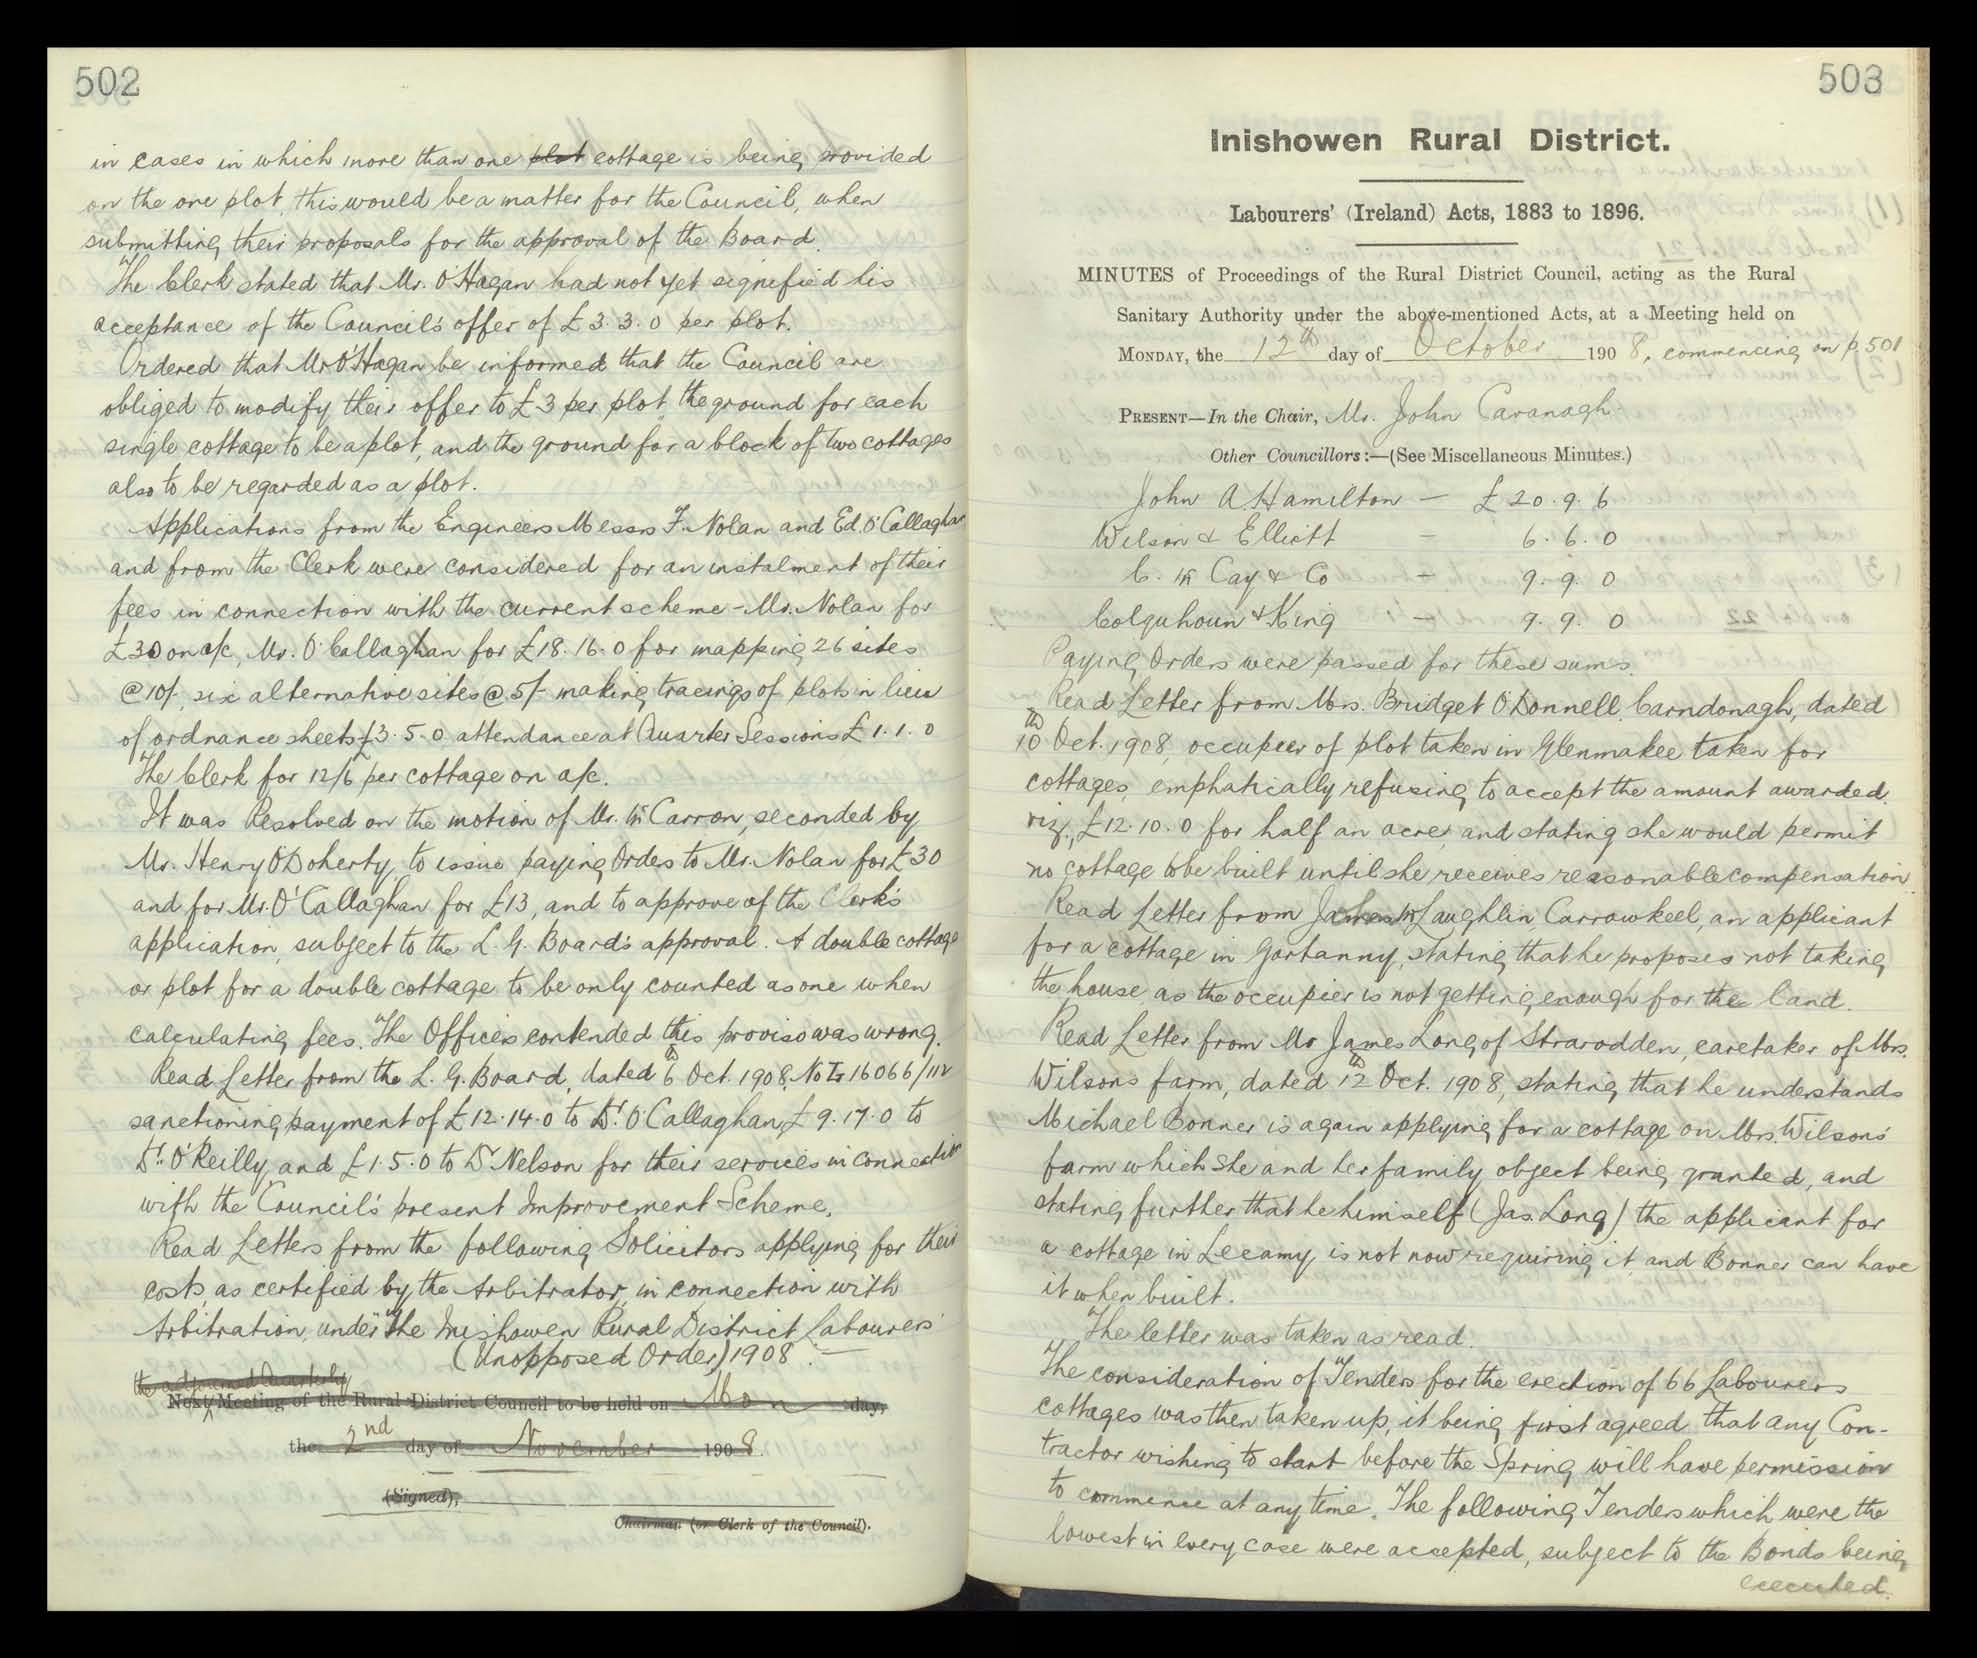 502
in cases in which more than one plot cottage is being provided
on the one plot, this would be a matter for the Council, when
submitting their proposals for the approval of the Board.
The Clerk stated that Mr. O'Hagan had not yet signified his
acceptance of the Council's offer of £3.3.0 per plot.
Ordered that Mr O'Hagan be informed that the Council are
obliged to modify their offer to £3 per plot, the ground for each
single cottage to be a plot, and the ground for a block of two cottages
also to be regarded as a plot.
Applications from the Engineers Messrs F. Nolan and Ed. O'Callaghan
and from the Clerk were considered for an instalment of their
fees in connection with the current scheme - Mr. Nolan for
£30 on a/c, Mr. O'Callaghan for £18.16.0 for mapping 26 sites
@ 10/-, six alternative sites @ 5/- making tracings of plots in lieu
of ordnance sheets £3.5.0 attendance at Quarter Sessions £1.1.0
The Clerk for 12/6 per cottage on a/c.
It was Resolved on the motion of Mr. McCarron, seconded by
Mr. Henry O'Doherty, to issue paying Order to Mr. Nolan for £30
and for Mr. O'Callaghan for £13, and to approve of the Clerk's
application, subject to the L. G. Board's approval. A double cottage
or plot for a double cottage to be only counted as one when
calculating fees. The Officers contended this proviso was wrong.
Read Letter from the L. G. Board, dated 6th Oct. 1908, No 16066/
sanctioning payment of £12.14.0 to Dr. O'Callaghan, £9.17.0 to
Dr. O'Reilly, and £1.5.0 to Dr Nelson for their services in connection
with the Council's present Improvement Scheme.
Read Letters from the following Solicitors applying for their
costs, as certified by the Arbitrator, in connection with
Arbitration, under "The Inishowen Rural District Labourers'
(Unopposed Order) 1908".
the adjourned Quarterly
Next Meeting of the Rural District Council to be held on Mon day,
the 2nd day of November 1908.
(Signed),
Chairman (or Clerk of the Council).
503
Inishowen Rural District.
Labourers' (Ireland) Acts, 1883 to 1896.
MINUTES of Proceedings of the Rural District Council, acting as the Rural
Sanitary Authority under the above-mentioned Acts, at a Meeting held on
MONDAY, the 12th day of October 1908, commencing on p. 501
PRESENT—In the Chair, Mr. John Cavanagh
Other Councillors:—(See Miscellaneous Minutes.)
John A Hamilton — £20.9.6
Wilson & Elliott — 6.6.0
C. McCay & Co — 9.9.0
Colquhoun & King — 9.9.0
Paying Orders were passed for these sums.
Read Letter from Mrs. Bridget O'Donnell, Carndonagh, dated
10th Oct. 1908, occupier of plot taken in Glenmakee taken for
cottages, emphatically refusing to accept the amount awarded
viz., £12.10.0 for half an acre, and stating she would permit
no cottage to be built until she receives reasonable compensation
Read Letter from James McLaughlin, Carrowkeel, an applicant
for a cottage in Gortanny, stating that he proposes not taking
the house as the occupier is not getting enough for the land.
Read Letter from Mr James Long of Strarodden, caretaker of Mrs.
Wilsons farm, dated 12th Oct. 1908, stating that he understands
Michael Bonner is again applying for a cottage on Mrs. Wilsons'
farm which she and her family object being granted, and
stating further that he himself (Jas. Long) the applicant for
a cottage in Lecamy is not now requiring it, and Bonner can have
it when built.
The letter was taken as read.
The consideration of Tenders for the erection of 66 Labourers
cottages was then taken up, it being first agreed that any Con-
tractor wishing to start before the Spring will have permission
to commence at any time. The following Tenders which were the
lowest in every case were accepted, subject to the Bonds being
executed.